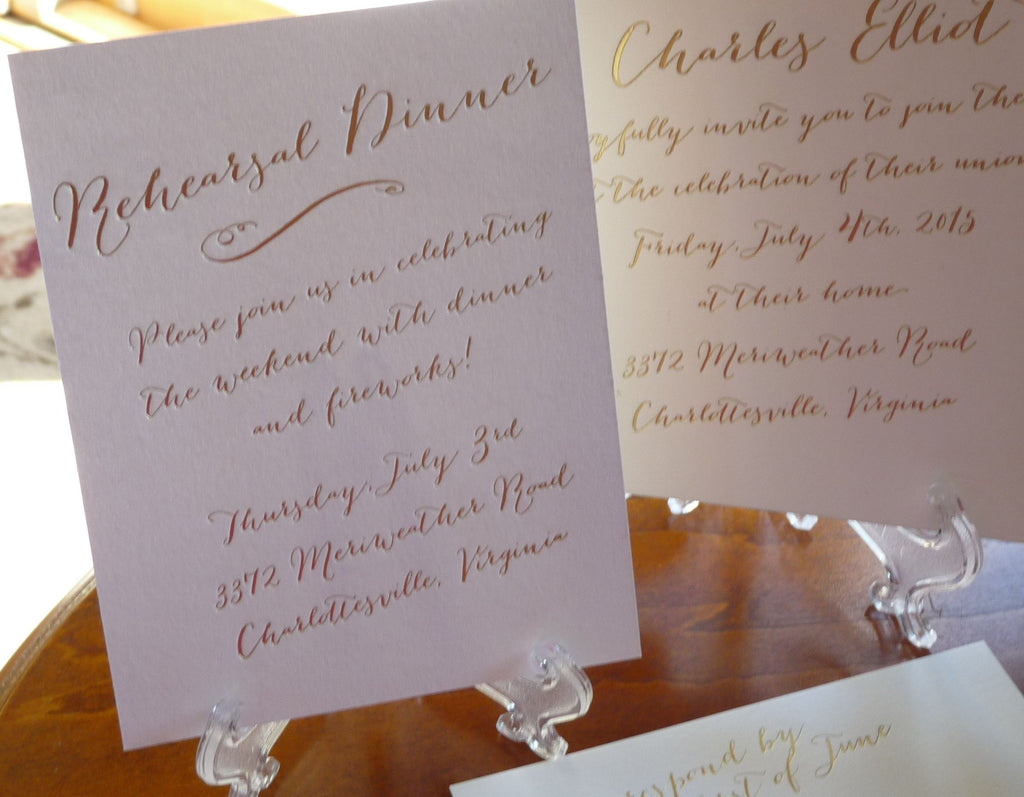 Rehearsal Dinner
Please join us in celebrating
the weekend with dinner
and fireworks!
Thursday, July 3rd
3372 Meriweather Road
Charlottesville, Virginia
Charles Elliot
yfully invite you to join the
the celebration of their union
Friday, July 4th, 2015
at their home
3372 Meriweather Road
Charlottesville, Virginia
respond by
of June